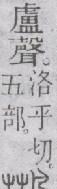 盧聲。
洛乎切。
五部。